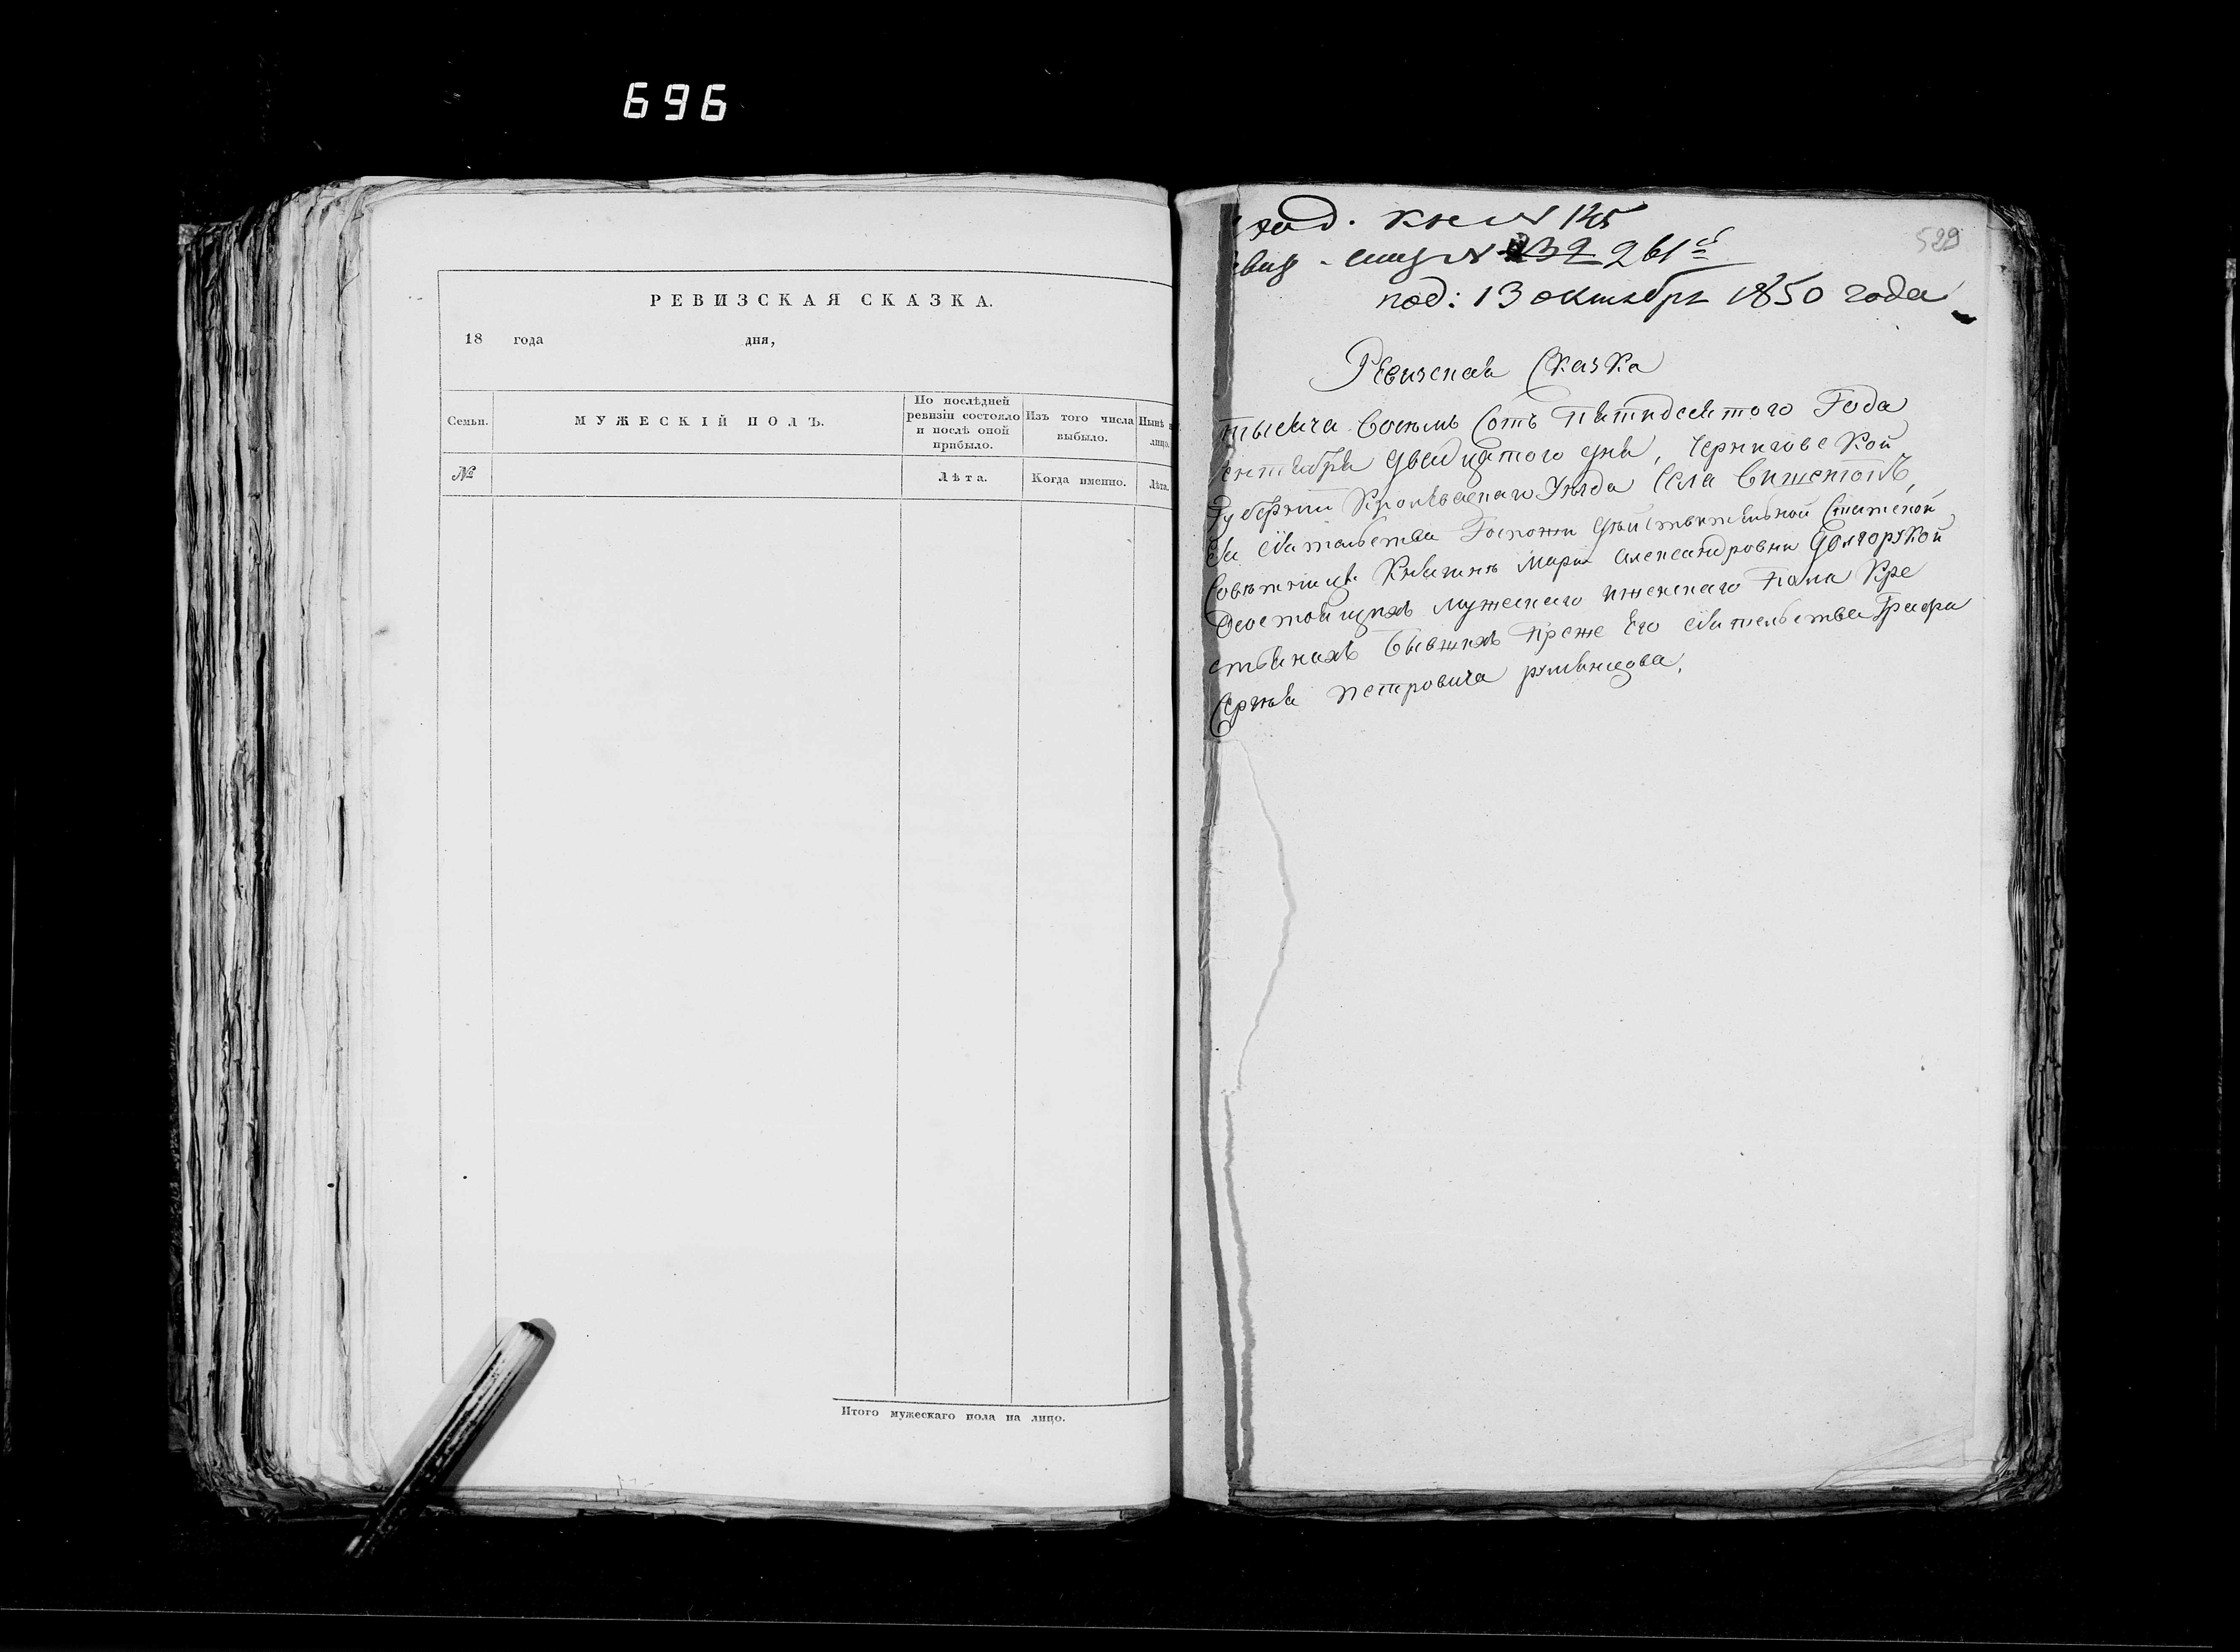 696
РЕВИЗСКАЯ СКАЗКА.
18 года дня,
Семьи.
МУЖЕСКІЙ ПОЛЪ.
По послѣдней ревизіи состояло и послѣ оной прибыло.
Изъ того числа выбыло.
Нынѣ на лицо.
№
Лѣта.
Когда именно.
Лѣта.
Итого мужескаго пола на лицо.
529
ход. кн. № 145
№ 232 261
под: 13 октября 1850 года
Ревизская Сказка
тысяча Восемь Сотъ Пятидесятого Года
сентября двадцятого дня, Черниговской
Губерніи Кролевецкаго Уезда Села Вишенокъ,
Ея Сіятельства Госпожи Действительной Статской
Советницы Княгинѣ Маріи Александровны Долгорукой
О состоящихъ мужескаго и женскаго Пола Кре
стьянахъ бывшихъ Преже Его Сіятельства Графа
Сергѣя Петровича румянцова.